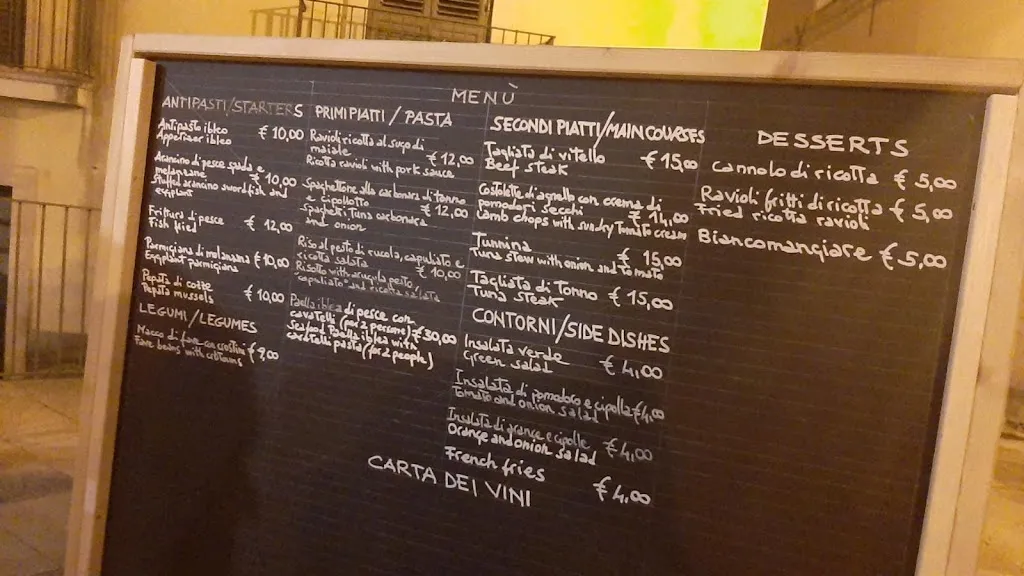 MENÙ
ANTIPASTI/STARTERS
Antipasto ibleo € 10,00
Appetizer ibleo
Arancino di pesce spada e
melanzane € 10,00
Stuffed arancino swordfish and
eggplant
Frittura di pesce
Fish fried € 12,00
Parmigiana di melanzana € 10,00
Eggplant parmigiana
Pepata di cozze
Pepata mussels € 10,00
LEGUMI/LEGUMES
Macco di fave con crostini € 9,00
Fave beans with
PRIMI PIATTI / PASTA
Ravioli ricotta al sugo di
maiale € 12,00
Ricotta ravioli with pork sauce
Spaghettone alla carbonara di tonno
e cipollotto € 12,00
Spaghetti Tuna carbonara
and onion
Riso al pesto di rucola, capuliato e
ricotta salata € 10,00
Risotto with
"capuliato" and ricotta salata
Paella iblea di pesce con
cavatelli (per 2 persone) € 30,00
Seafood Paella iblea with
cavatelli pasta (for 2 people)
SECONDI PIATTI/MAIN COURSES
Tagliata di vitello € 15,00
Beef steak
Costolette di agnello con crema di
pomodori secchi € 14,00
Lamb chops with sundry tomato cream
Tunnina € 15,00
Tuna stew with onion and tomato
Tagliata di Tonno € 15,00
Tuna steak
CONTORNI/SIDE DISHES
Insalata verde € 4,00
Green salad
Insalata di pomodoro e cipolla € 4,00
Tomato and onion salad
Insalata di arance e cipolle € 4,00
Orange and onion salad
French fries € 4,00
CARTA DEI VINI
DESSERTS
Cannolo di ricotta € 5,00
Ravioli fritti di ricotta € 5,00
Fried ricotta ravioli
Biancomangiare € 5,00